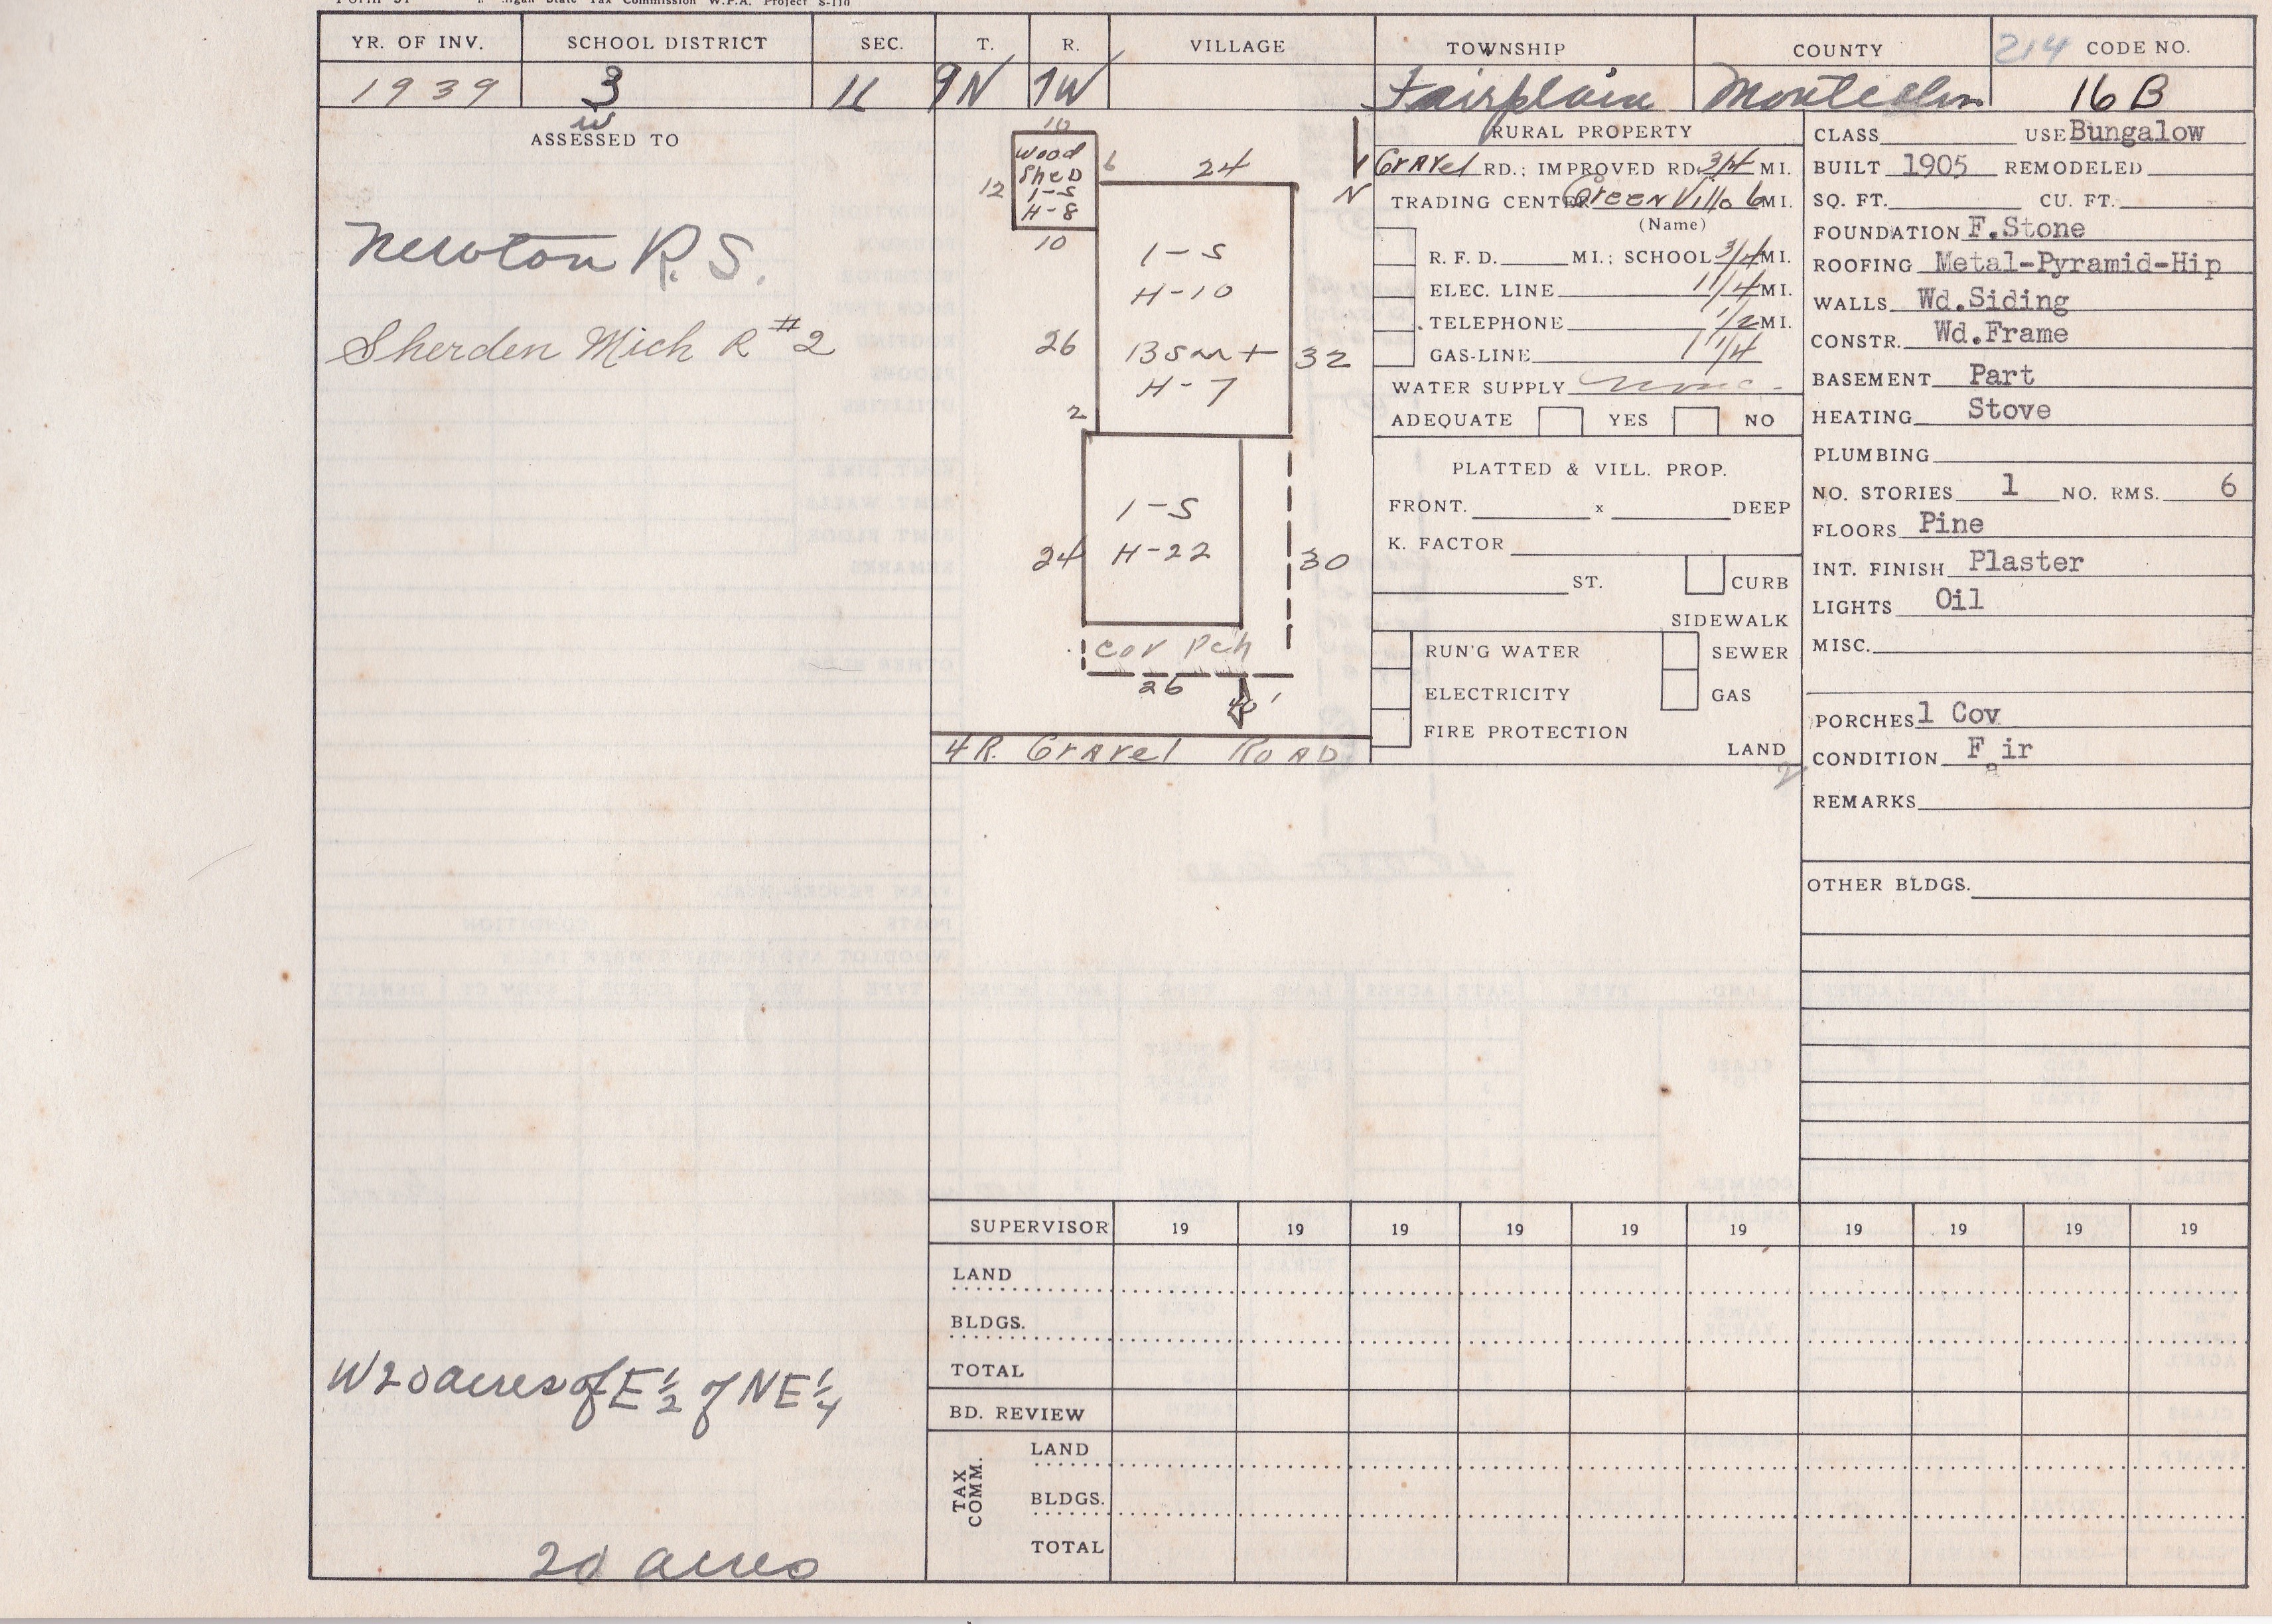 State Tax Commission W.P.A. Project S-110
YR. OF INV. SCHOOL DISTRICT SEC. T. R. VILLAGE TOWNSHIP COUNTY 214 CODE NO.
1939 3 11 9N 7W Fairplain Montcalm 16 B
W
ASSESSED TO
Newton R. S.
Sherden Mich R #2
W 20 acres of E 1/2 of NE 1/4
20 acres
10
Wood
Shed
1-S
H-8
12
6
10
24
N
1-S
H-10
26
Bsmt
H-7
32
2
1-S
H-22
24
30
Cov Pch
26
40'
4R. Gravel Road
RURAL PROPERTY
Gravel RD.; IMPROVED RD. 3/4 MI.
TRADING CENTER GreenVille 6 MI.
(Name)
R. F. D. MI.; SCHOOL 3/4 MI.
ELEC. LINE 1 1/4 MI.
TELEPHONE 1/2 MI.
GAS-LINE 1 1/4
WATER SUPPLY none
ADEQUATE YES NO
PLATTED & VILL. PROP.
FRONT. x DEEP
K. FACTOR
ST. CURB
SIDEWALK
RUN'G WATER SEWER
ELECTRICITY GAS
FIRE PROTECTION
LAND
CLASS USE Bungalow
BUILT 1905 REMODELED
SQ. FT. CU. FT.
FOUNDATION F.Stone
ROOFING Metal-Pyramid-Hip
WALLS Wd.Siding
CONSTR. Wd.Frame
BASEMENT Part
HEATING Stove
PLUMBING
NO. STORIES 1 NO. RMS. 6
FLOORS Pine
INT. FINISH Plaster
LIGHTS Oil
MISC.
PORCHES 1 Cov
CONDITION Fair
REMARKS
OTHER BLDGS.
SUPERVISOR 19 19 19 19 19 19 19 19 19 19
LAND
BLDGS.
TOTAL
BD. REVIEW
TAX COMM.
LAND
BLDGS.
TOTAL